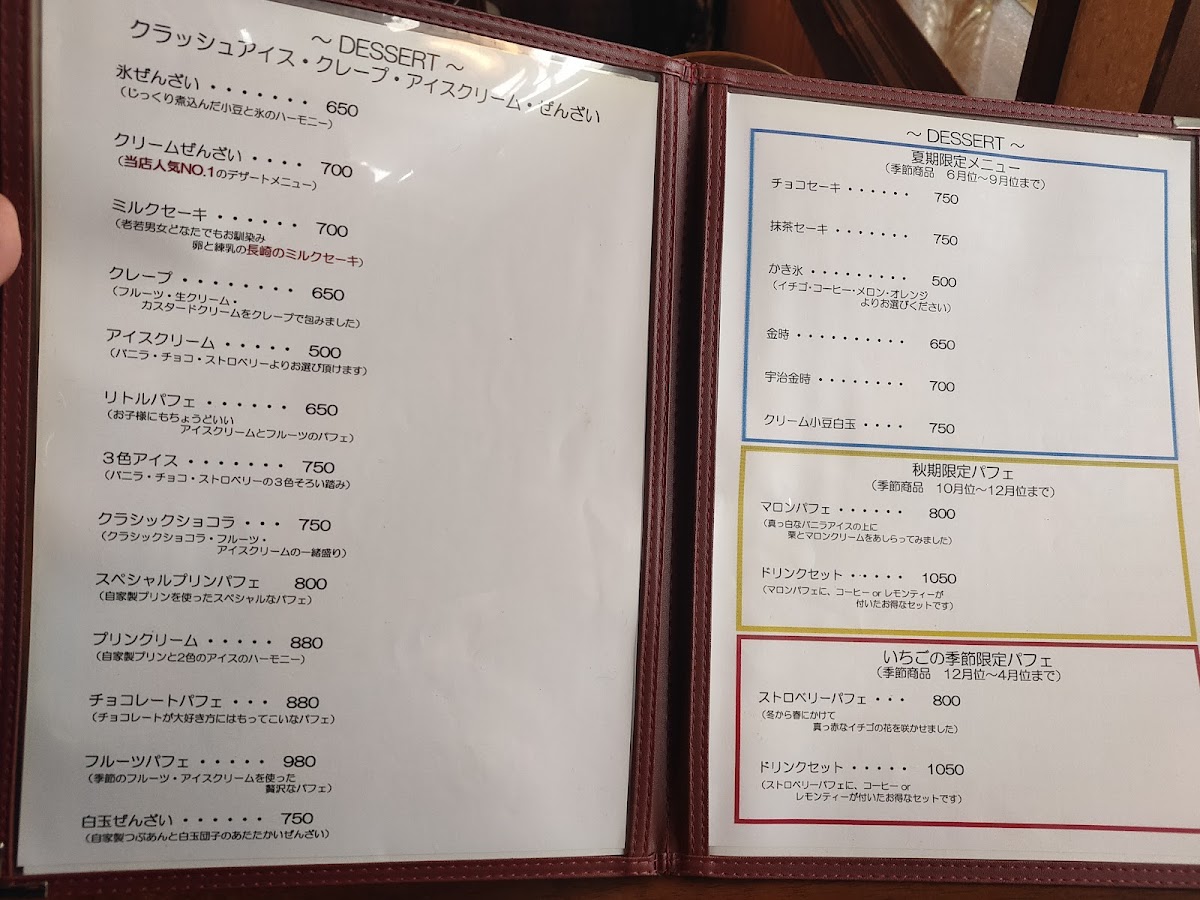 ～ DESSERT ～
クラッシュアイス・クレープ・アイスクリーム・ぜんざい
氷ぜんざい ・・・・・・・ 650
（じっくり煮込んだ小豆と氷のハーモニー）
クリームぜんざい ・・・・ 700
（当店人気NO.1のデザートメニュー）
ミルクセーキ ・・・・・・ 700
（老若男女どなたでもお馴染み
卵と練乳の長崎のミルクセーキ）
クレープ ・・・・・・・・ 650
（フルーツ・生クリーム・
カスタードクリームをクレープで包みました）
アイスクリーム ・・・・・ 500
（バニラ・チョコ・ストロベリーよりお選び頂けます）
リトルパフェ ・・・・・・ 650
（お子様にもちょうどいい
アイスクリームとフルーツのパフェ）
３色アイス ・・・・・・・ 750
（バニラ・チョコ・ストロベリーの３色そろい踏み）
クラシックショコラ ・・・ 750
（クラシックショコラ・フルーツ・
アイスクリームの一緒盛り）
スペシャルプリンパフェ 800
（自家製プリンを使ったスペシャルなパフェ）
プリンクリーム ・・・・・ 880
（自家製プリンと2色のアイスのハーモニー）
チョコレートパフェ ・・・ 880
（チョコレートが大好き方にはもってこいなパフェ）
フルーツパフェ ・・・・・ 980
（季節のフルーツ・アイスクリームを使った
贅沢なパフェ）
白玉ぜんざい ・・・・・・ 750
（自家製つぶあんと白玉団子のあたたかいぜんざい）
～ DESSERT ～
夏期限定メニュー
（季節商品　6月位～9月位まで）
チョコセーキ ・・・・・・ 750
抹茶セーキ ・・・・・・・ 750
かき氷 ・・・・・・・・・ 500
（イチゴ・コーヒー・メロン・オレンジ
よりお選びください）
金時 ・・・・・・・・・・ 650
宇治金時 ・・・・・・・・ 700
クリーム小豆白玉 ・・・・ 750
秋期限定パフェ
（季節商品　10月位～12月位まで）
マロンパフェ ・・・・・・ 800
（真っ白なバニラアイスの上に
栗とマロンクリームをあしらってみました）
ドリンクセット ・・・・・ 1050
（マロンパフェに、コーヒー or レモンティーが
付いたお得なセットです）
いちごの季節限定パフェ
（季節商品　12月位～4月位まで）
ストロベリーパフェ ・・・ 800
（冬から春にかけて
真っ赤なイチゴの花を咲かせました）
ドリンクセット ・・・・・ 1050
（ストロベリーパフェに、コーヒー or
レモンティーが付いたお得なセットです）